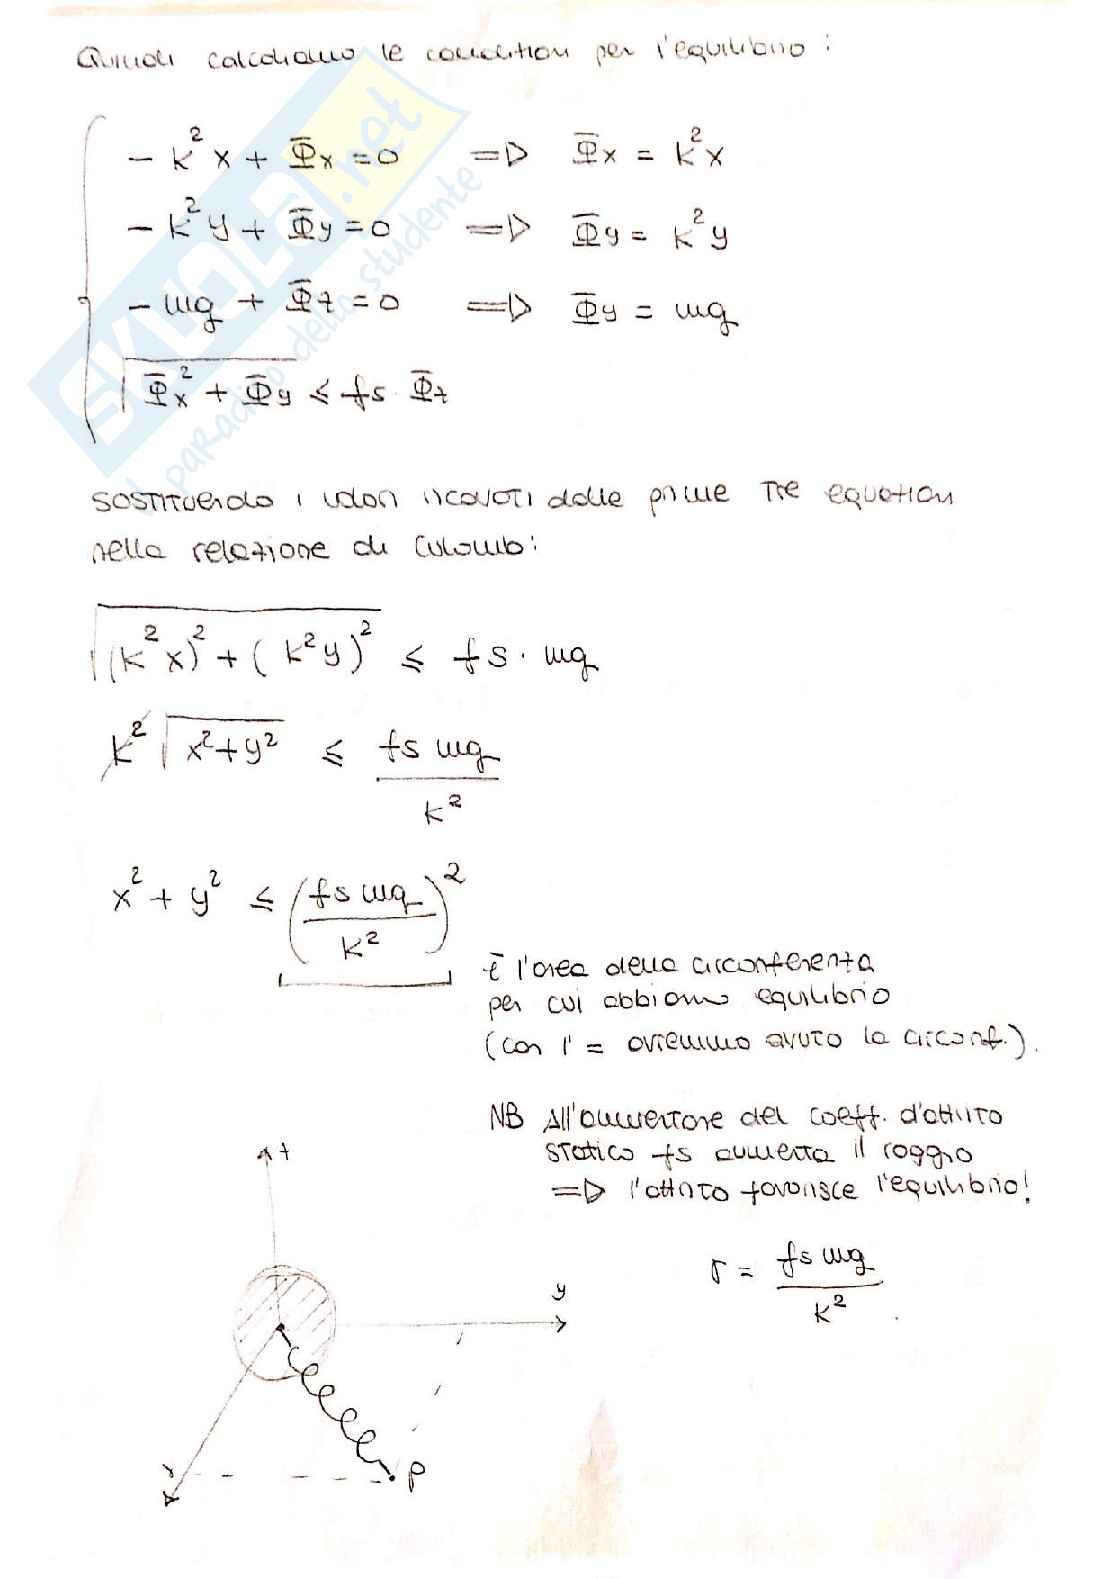 Quindi calcoliamo le condizioni per l'equilibrio :
- k² x + Φ̄x = 0 => Φ̄x = k² x
- k² y + Φ̄y = 0 => Φ̄y = k² y
- mg + Φ̄z = 0 => Φ̄y = mg
√(Φ̄x² + Φ̄y) ≤ fs · Φ̄z
sostituendo i valori ricavati dalle prime tre equazioni
nella relazione di Culomb:
√((k² x)² + (k² y)²) ≤ fs · mg
k² √(x² + y²) ≤ fs mg / k²
x² + y² ≤ (fs mg / k²)²
È l'area della circonferenza
per cui abbiamo equilibrio
(con l' = avremmo avuto la circonf.).
NB All'aumentare del coeff. d'attrito
statico fs aumenta il raggio
=> l'attrito favorisce l'equilibrio!
z
r = fs mg / k²
y
x
P
SKUOLA.net
il paradiso dello studente